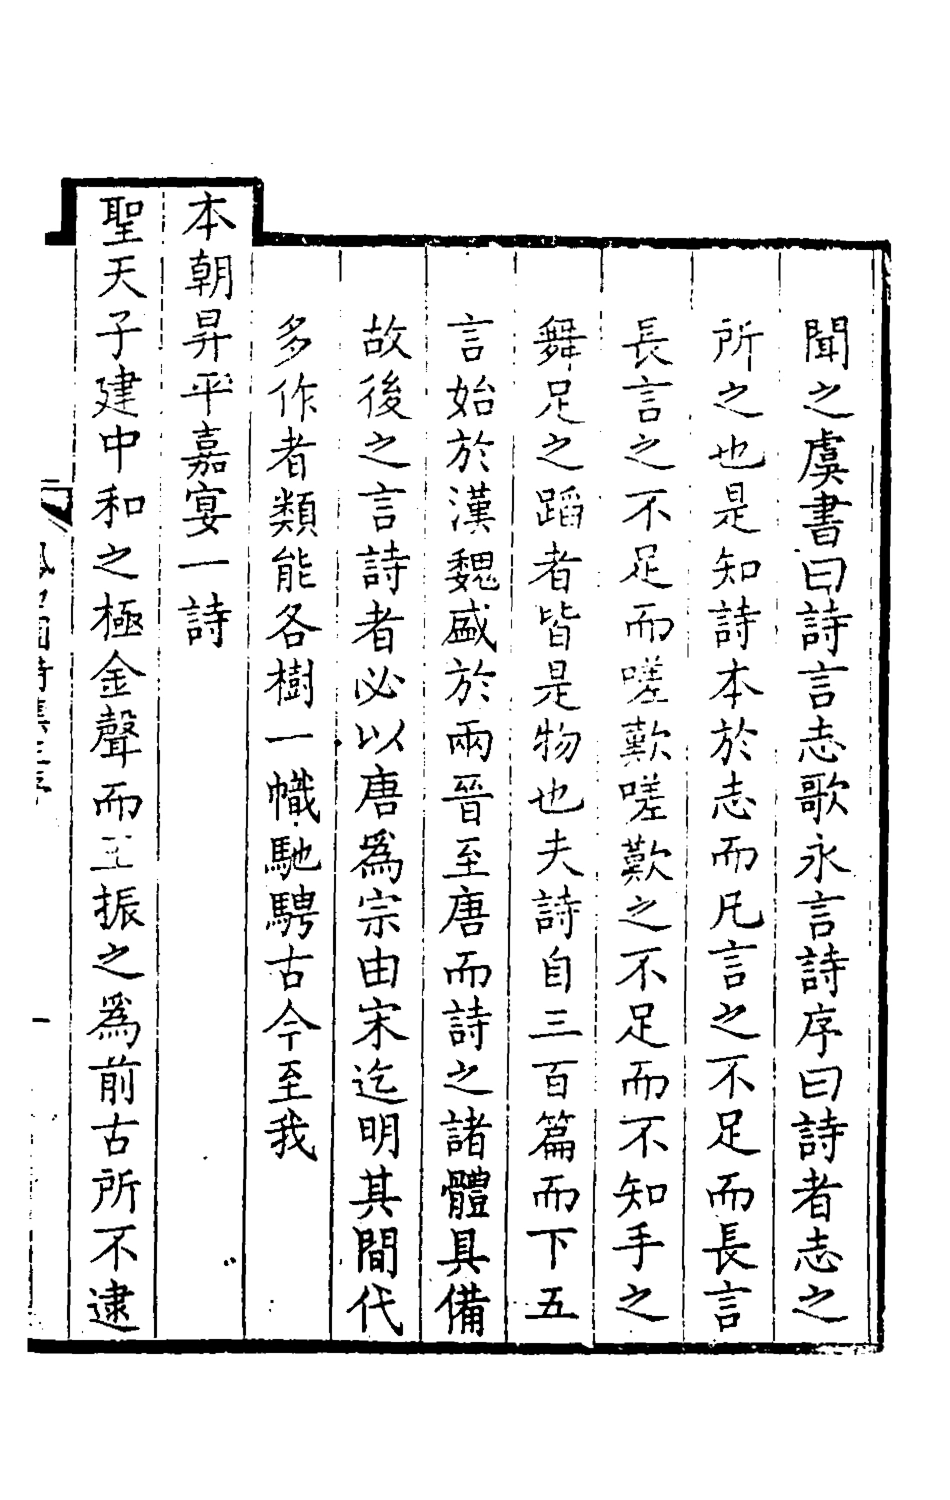 聞之虞書曰詩言志歌永言詩序曰詩者志之
所之也是知詩本於志而凡言之不足而長言
長言之不足而嗟歎嗟歎之不足而不知手之
舞足之蹈者皆是物也夫詩自三百篇而下五
言始於漢魏盛於兩晉至唐而詩之諸體具備
故後之言詩者必以唐爲宗由宋迄明其間代
多作者類能各樹一幟馳騁古今至我
本朝昇平嘉宴一詩
聖天子建中和之極金聲而玉振之爲前古所不逮
一